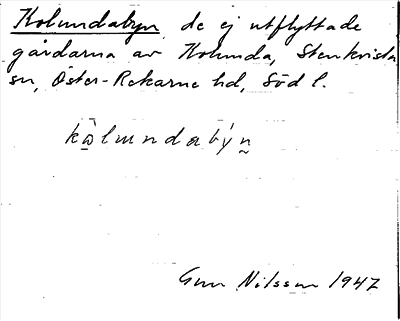 Kolundabyn, de ej utflyttade
gårdarna av Kolunda, Stenkvista
sn, Öster-Rekarne hd, Söd l.
kὼ̠lundabýn̰
Gun Nilsson 1947